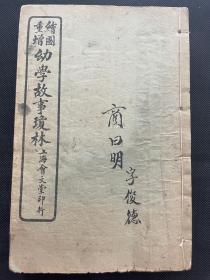 繪圖
重增
幼學故事瓊林
上海會文堂印行
商曰明
字俊德